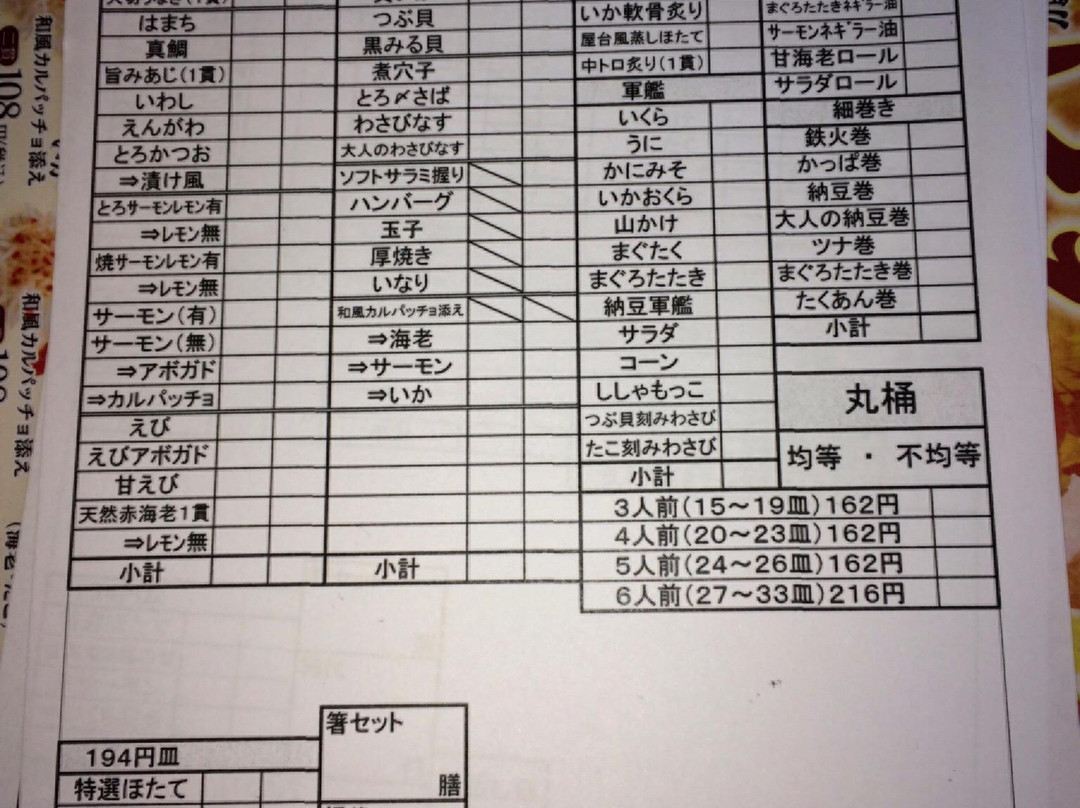 はまち
真鯛
旨みあじ(1貫)
いわし
えんがわ
とろかつお
⇒漬け風
とろサーモンレモン有
⇒レモン無
焼サーモンレモン有
⇒レモン無
サーモン(有)
サーモン(無)
⇒アボガド
⇒カルパッチョ
えび
えびアボガド
甘えび
天然赤海老1貫
⇒レモン無
小計
つぶ貝
黒みる貝
煮穴子
とろ〆さば
わさびなす
大人のわさびなす
ソフトサラミ握り
ハンバーグ
玉子
厚焼き
いなり
和風カルパッチョ添え
⇒海老
⇒サーモン
⇒いか
小計
いか軟骨炙り
屋台風蒸しほたて
中トロ炙り(1貫)
軍艦
いくら
うに
かにみそ
いかおくら
山かけ
まぐたく
まぐろたたき
納豆軍艦
サラダ
コーン
ししゃもっこ
つぶ貝刻みわさび
たこ刻みわさび
小計
まぐろたたきネギラー油
サーモンネギラー油
甘海老ロール
サラダロール
細巻き
鉄火巻
かっぱ巻
納豆巻
大人の納豆巻
ツナ巻
まぐろたたき巻
たくあん巻
小計
丸桶
均等・不均等
3人前(15～19皿)162円
4人前(20～23皿)162円
5人前(24～26皿)162円
6人前(27～33皿)216円
箸セット
膳
194円皿
特選ほたて
和風カルパッチョ添え
108
和風カルパッチョ添え